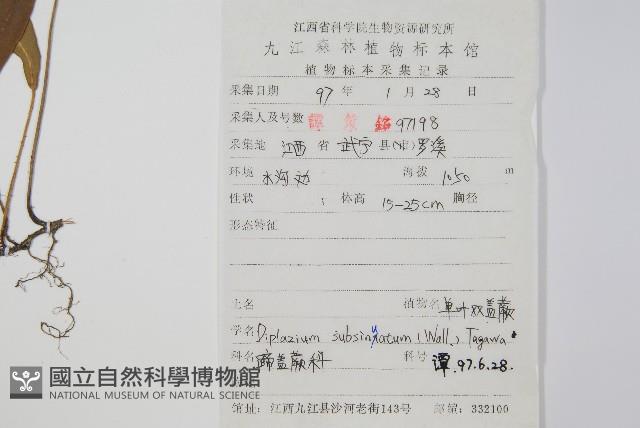 江西省科学院生物资源研究所
九江森林植物标本馆
植物标本采集记录
采集日期 97 年 1 月 28 日
采集人及号数 譚策銘 97198
采集地 江西 省 武宁 县(市) 罗溪
环境 水沟边 海拔 1050 m
性状 体高 15-25cm 胸径
形态特征
土名 植物名 单叶双盖蕨
学名 Diplazium subsinuatum (Wall.) Tagawa
科名 蹄盖蕨科 科号 譚.97.6.28.
國立自然科學博物館
NATIONAL MUSEUM OF NATURAL SCIENCE
馆址:江西九江县沙河老街143号 邮编:332100